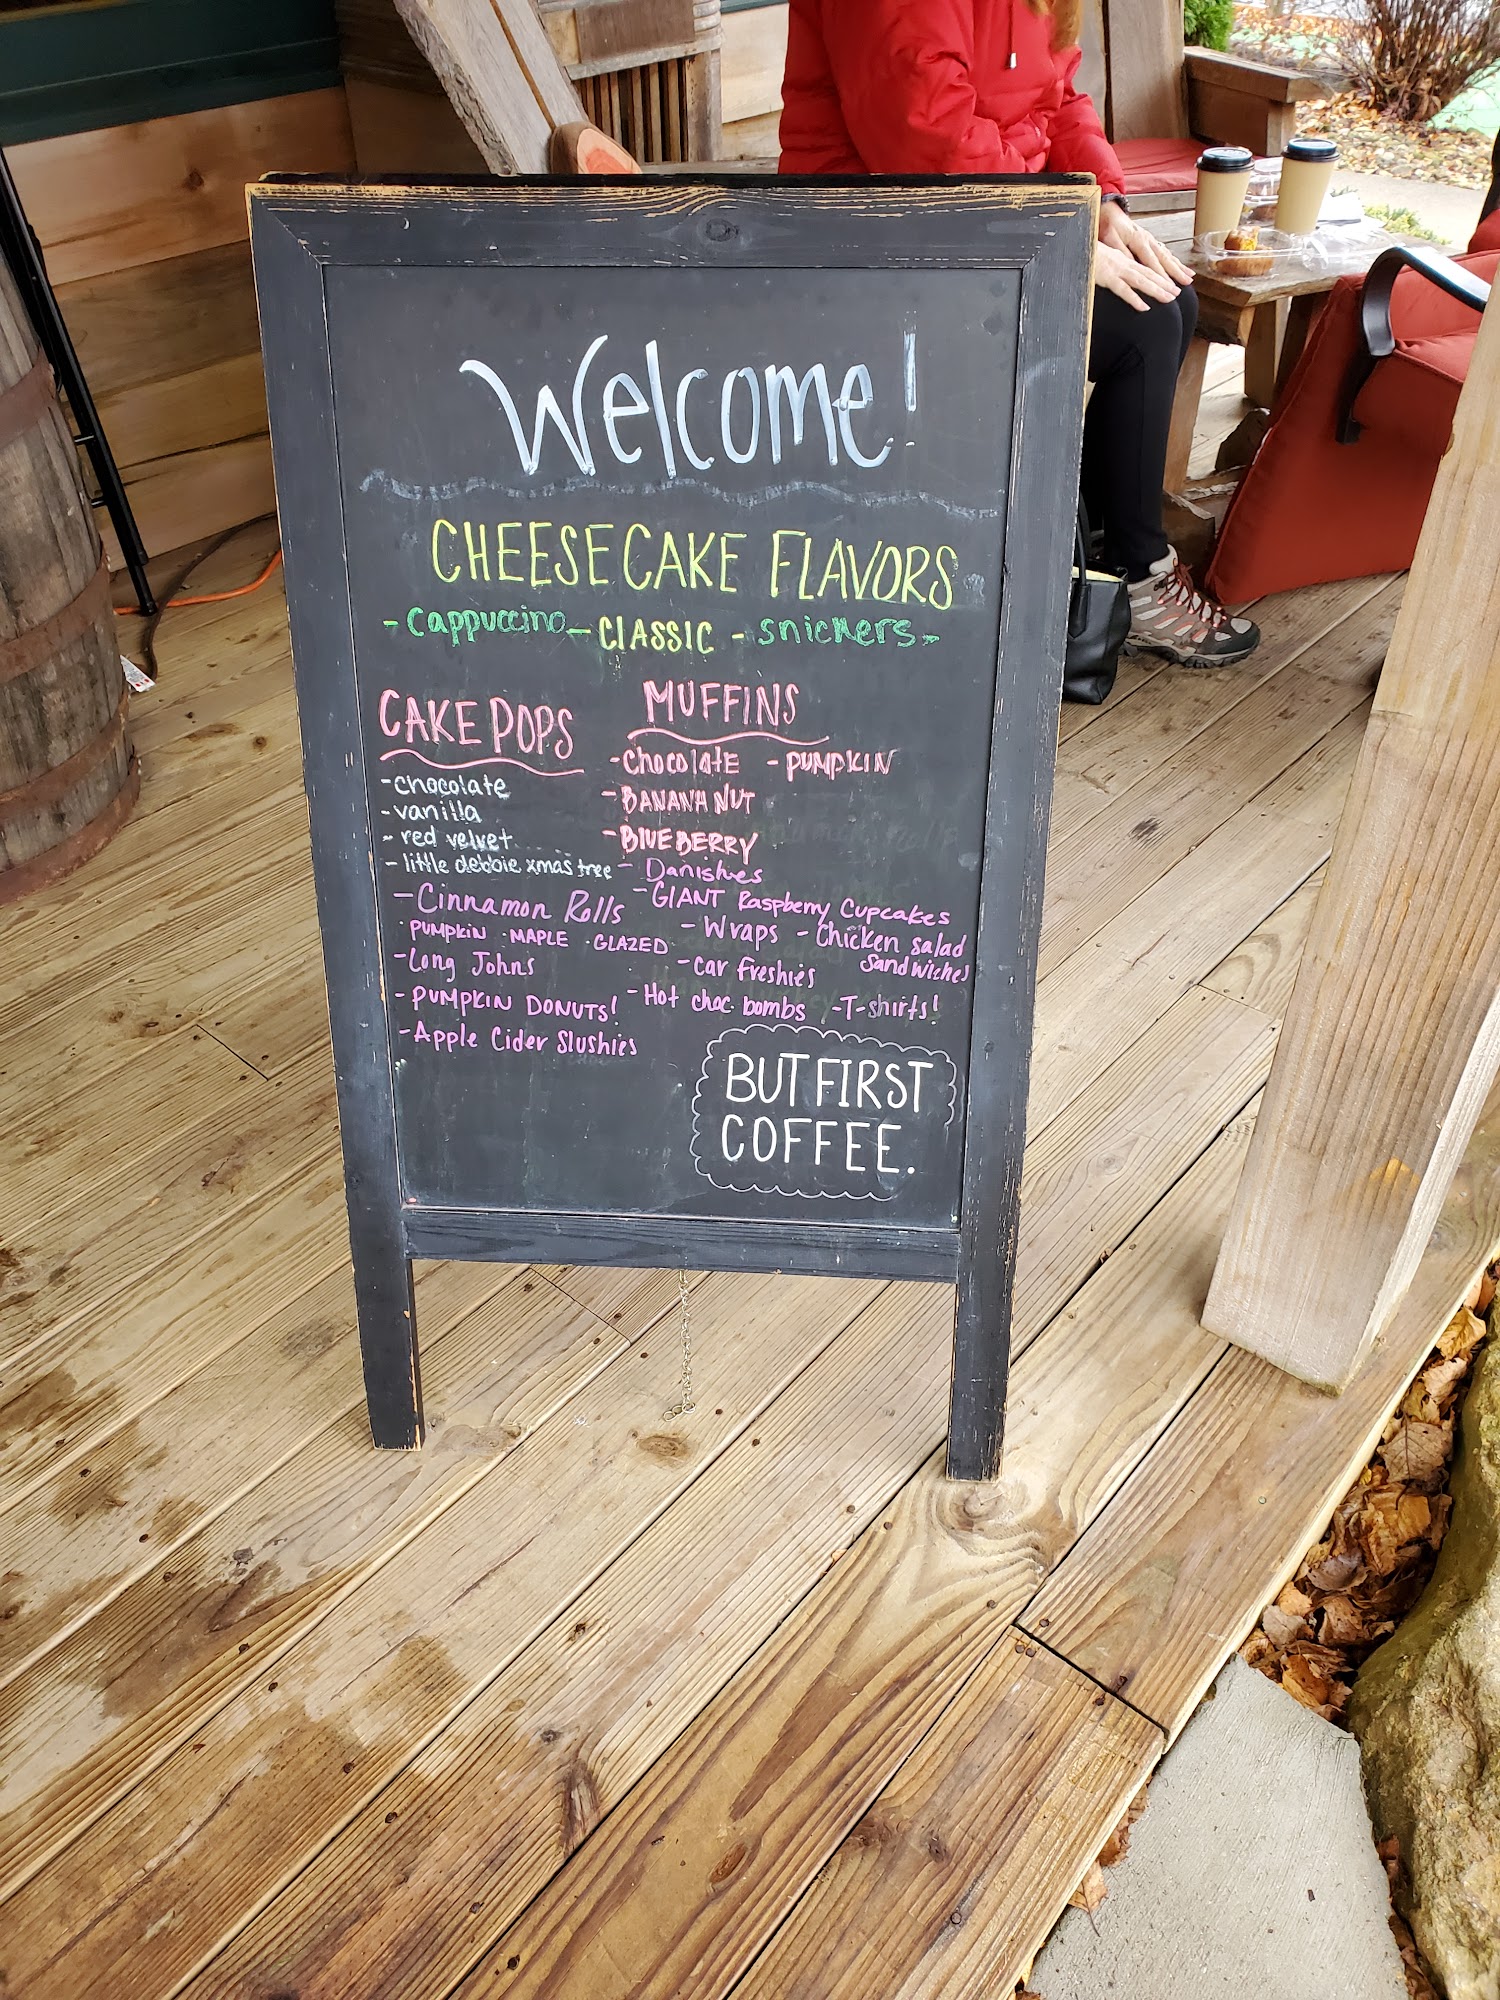 Welcome!
CHEESECAKE FLAVORS
- Cappuccino - CLASSIC - snickers -
CAKE POPS
- chocolate
- vanilla
- red velvet
- little debbie xmas tree
MUFFINS
- Chocolate - PUMPKIN
- BANANA NUT
- BLUEBERRY
- Danishes
- Cinnamon Rolls
· PUMPKIN · MAPLE · GLAZED
- Long Johns
- PUMPKIN DONUTS!
- Apple Cider Slushies
- GIANT Raspberry Cupcakes
- Wraps - Chicken salad
sandwiches
- Car Freshies
- Hot choc. bombs - T-shirts!
BUT FIRST
COFFEE.